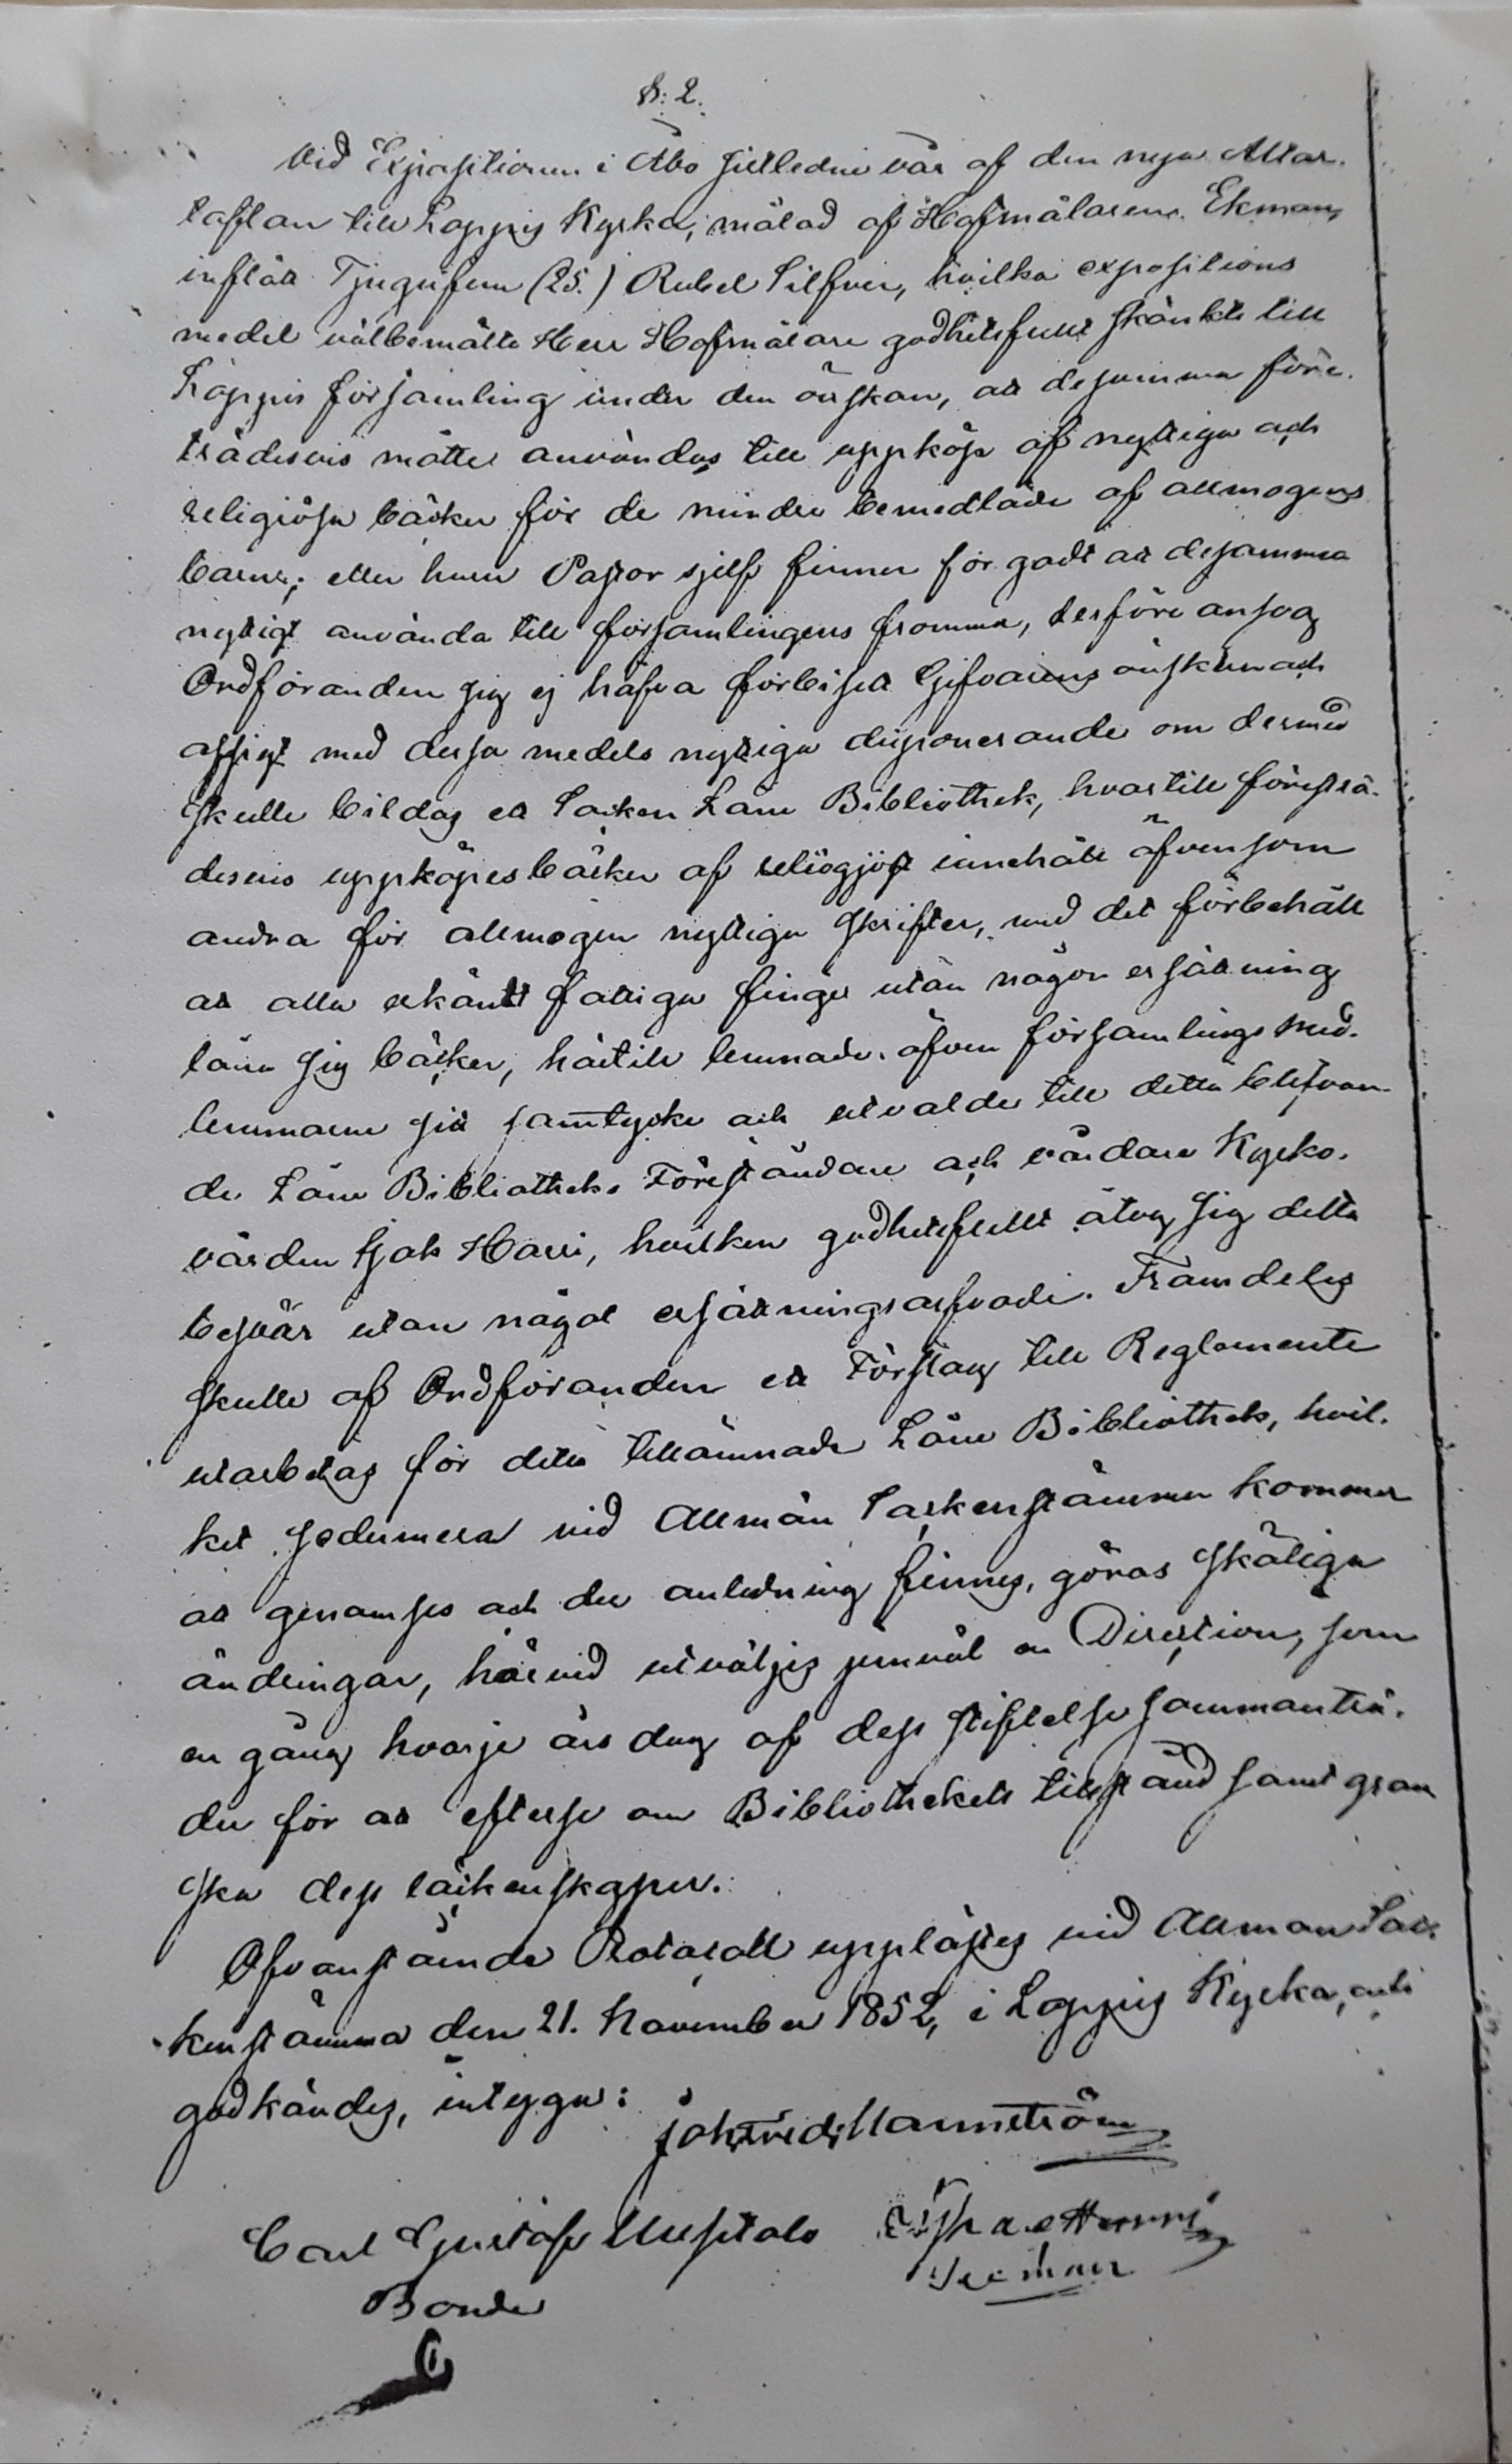 §: 2.
Vid Expositionen i Åbo sistledne vår af den nya Altar-
taflan till Loppis Kyrka, målad af Hofmålaren Ekman,
inflöt Tjugufem (25.) Rubel Silfver, hvilka expositions
medel välbemälte Herr Hofmålare godhetsfullt skänkte till
Loppis församling under den önskan, att desamma före-
trädesvis måtte användas till uppköp af nyttiga och
religiösa böcker för de mindre bemedlade af allmogens
barn; eller huru Pastor sjelf finner för godt att desamma
nyttigt använda till församlingens fromma, derföre ansåg
Ordföranden sig ej hafva förbisett Gifvarens önskan och
afsigt med dessa medels nyttiga disponerande om dermed
skulle bildas ett Socken Låne Bibliothek, hvartill företrä-
desvis uppköpes böcker af religjöst innehåll äfvensom
andra för allmogen nyttiga skrifter, med det förbehåll
att alla erkändt fattiga finge utan någon ersättning
låna sig böcker, härtill lemnade äfven församlings med-
lemmarne sitt samtycke och utvalde till detta blifvan-
de Låne Bibliotheks Föreståndare och vårdare Kyrko-
värden Isak Harri, hvilken godhetsfullt åtog sig detta
besvär utan något ersättningsarfvode. Framdeles
skulle af Ordföranden ett Förslag till Reglemente
utarbetas för detta tillämnade Låne Bibliothek, hvil-
ket sedermera vid Allmän Sockenstämma kommer
att genomses och der anledning finnes, göras skäliga
ändringar, härvid utväljes jemväl en Direction, som
en gång hvarje års dag af dess stiftelse sammanträ-
der för att efterse om Bibliothekets tillstånd samt gran
ska dess räkenskaper.
Ofvanstående Protocoll upplästes vid Allman Soc-
kenstämma den 21. November 1852, i Loppis Kyrka, och
godkändes, intyga:
Joh. Fred:
Carl Gustaf Uusitalo Harri
Bonde